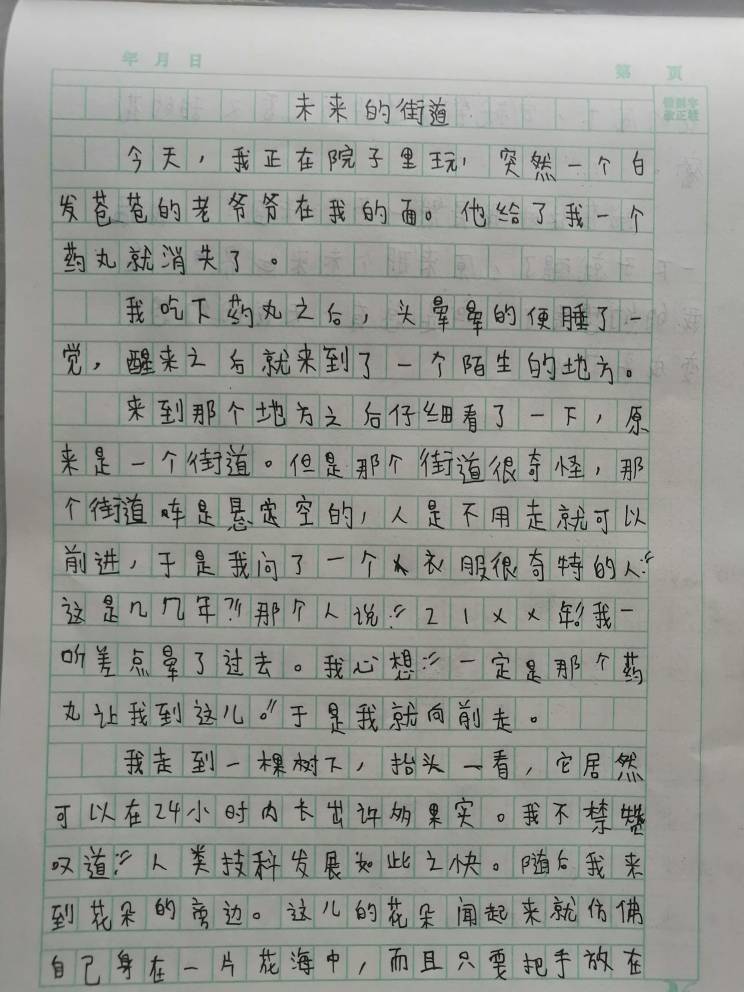 年 月 日
第 页
未来的街道
今天，我正在院子里玩，突然一个白
发苍苍的老爷爷在我的面。他给了我一个
药丸就消失了。
我吃下药丸之后，头晕晕的便睡了一
觉，醒来之后就来到了一个陌生的地方。
来到那个地方之后仔细看了一下，原
来是一个街道。但是那个街道很奇怪，那
个街道是悬定空的，人是不用走就可以
前进，于是我问了一个衣服很奇特的人：“
这是几几年？”那个人说：“21××年！”我一
听差点晕了过去。我心想：“一定是那个药
丸让我到这儿。”于是我就向前走。
我走到一棵树下，抬头一看，它居然
可以在24小时内长出许多果实。我不禁赞
叹道：“人类技科发展如此之快。随后我来
到花朵的旁边。这儿的花朵闻起来就仿佛
自己身在一片花海中，而且只要把手放在